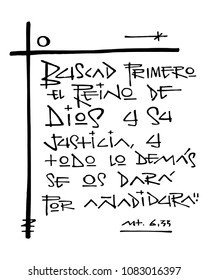 Buscad primero
el Reino de
Dios y su
Justicia, y
todo lo demás
se os dará
por añadidura"
Mt. 6,33
www.shutterstock.com · 1083016397